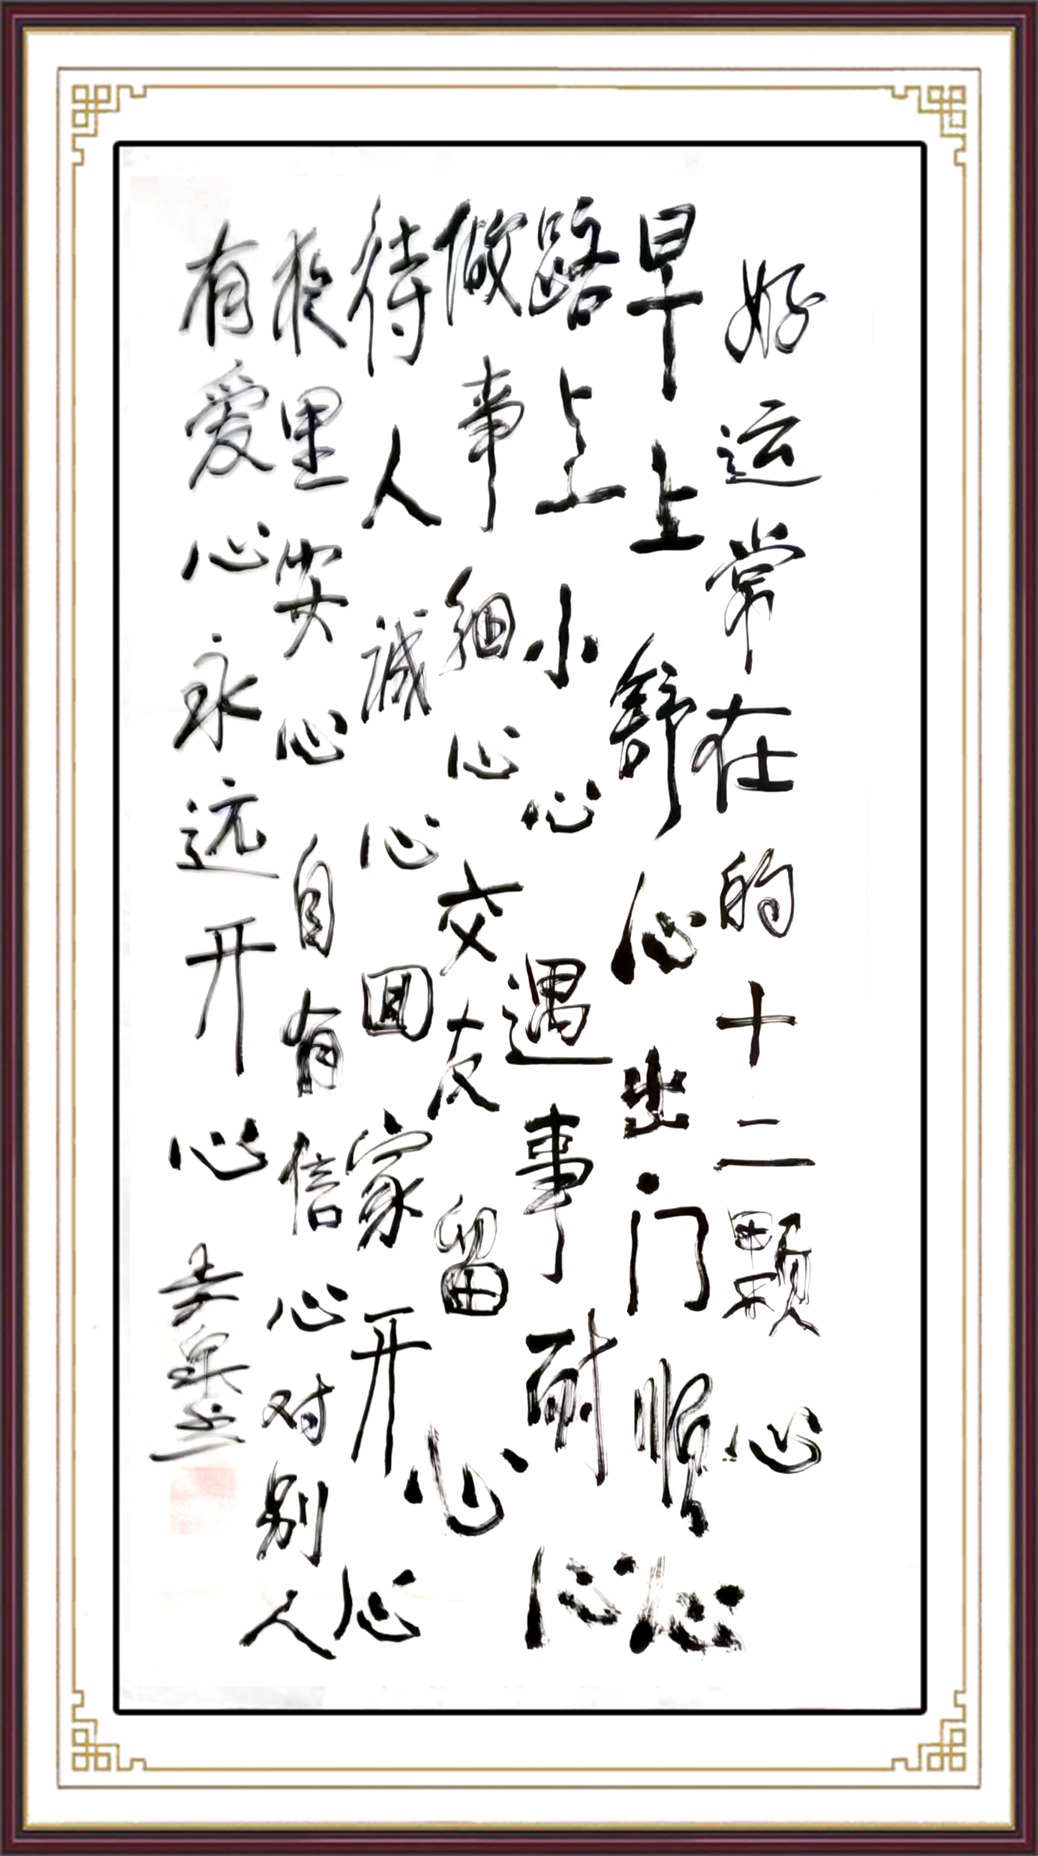 好运常在的十二颗心
早上舒心出门顺心
路上小心遇事耐心
做事细心交友留心
待人诚心回家开心
夜里安心自有信心对别人
有爱心永远开心